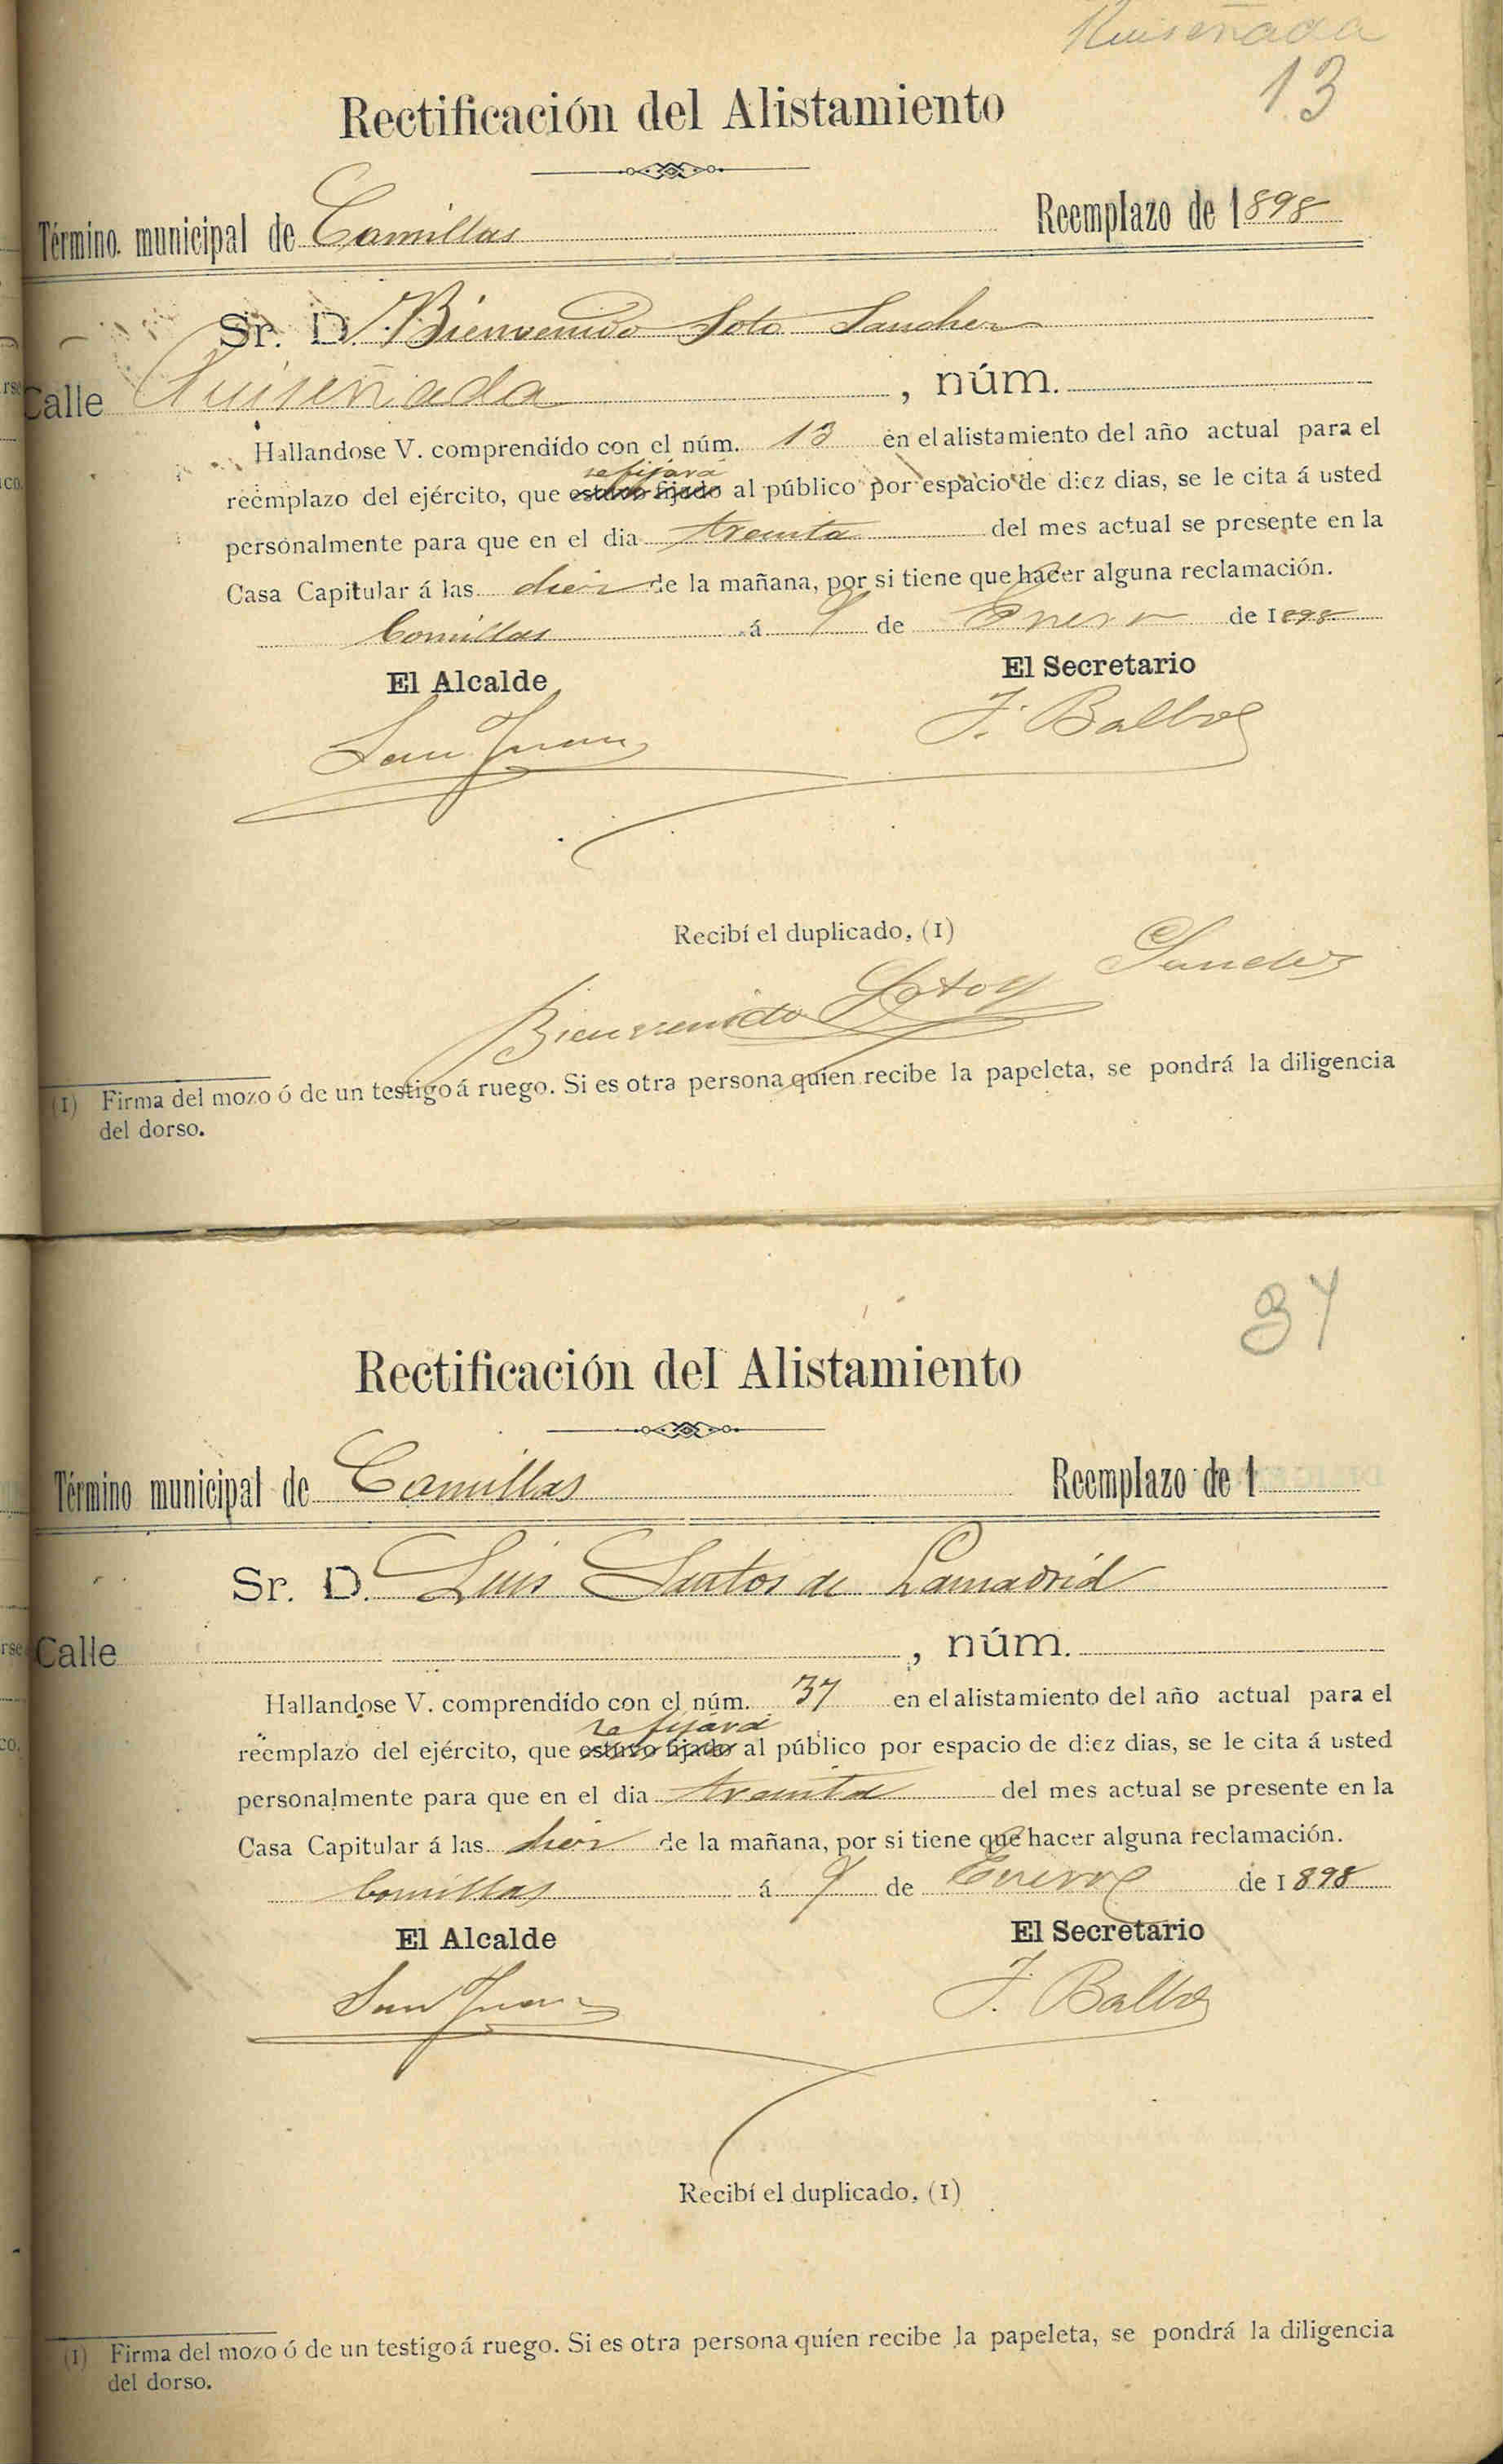 Ruiseñada
13
Rectificación del Alistamiento
Término municipal de Comillas Reemplazo de 1898
Sr. D. Bienvenido Soto Sanchez
Calle Ruiseñada, núm.
Hallandose V. comprendído con el núm. 13 en el alistamiento del año actual para el
se fijará
reemplazo del ejército, que estuvo fijado al público por espacio de diez dias, se le cita á usted
personalmente para que en el dia treinta del mes actual se presente en la
Casa Capitular á las diez de la mañana, por si tiene que hacer alguna reclamación.
Comillas á 9 de Enero de 1898
El Alcalde El Secretario
San Juan J. Balbas
Recibí el duplicado, (1)
Bienvenido Soto y Sanchez
(1) Firma del mozo ó de un testigo á ruego. Si es otra persona quíen recibe la papeleta, se pondrá la diligencia
del dorso.
37
Rectificación del Alistamiento
Término municipal de Comillas Reemplazo de 1
Sr. D. Luis Santos de Lamadrid
Calle , núm.
Hallandose V. comprendído con el núm. 37 en el alistamiento del año actual para el
se fijará
reemplazo del ejército, que estuvo fijado al público por espacio de diez dias, se le cita á usted
personalmente para que en el dia treinta del mes actual se presente en la
Casa Capitular á las diez de la mañana, por si tiene que hacer alguna reclamación.
Comillas á 9 de Enero de 1898
El Alcalde El Secretario
San Juan J. Balbas
Recibí el duplicado, (1)
(1) Firma del mozo ó de un testigo á ruego. Si es otra persona quíen recibe la papeleta, se pondrá la diligencia
del dorso.